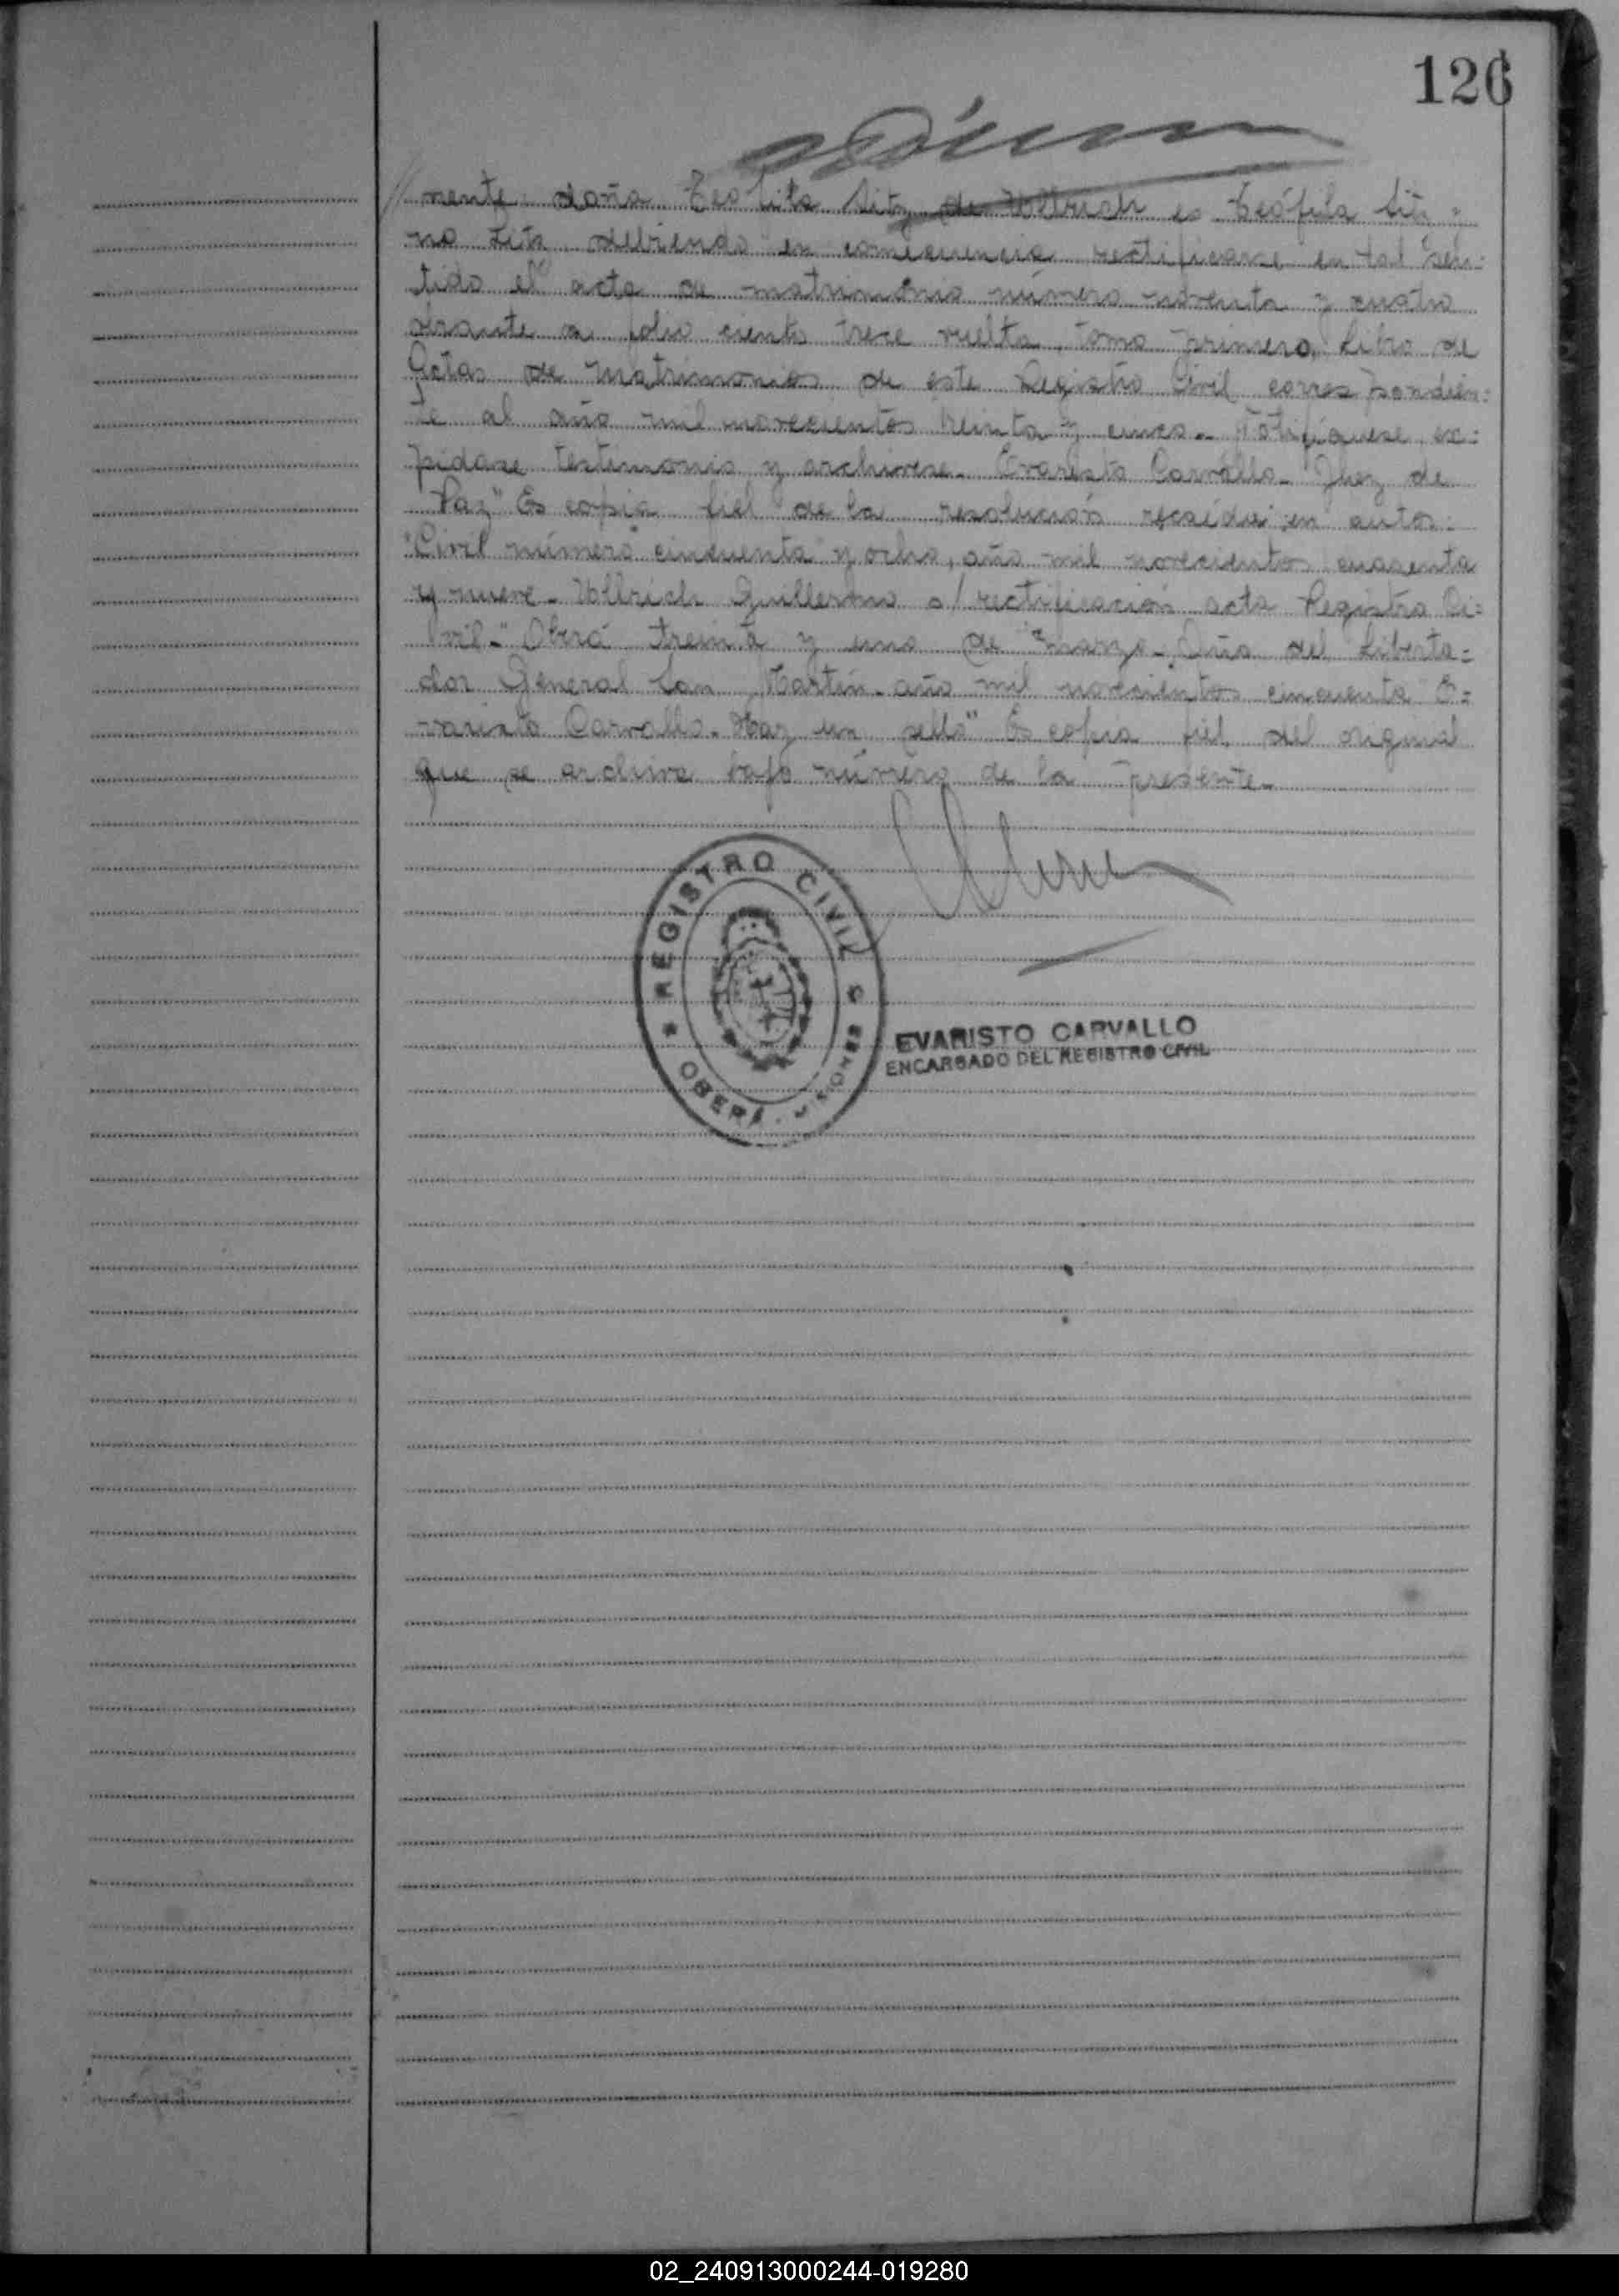 126
mente doña Teofila Sitz de Vollrich es Teófila Sitz y
no Zitz debiendo en consecuencia rectificarse en tal sen=
tido el acta de matrimonio número noventa y cuatro
obrante a folio ciento trece vuelta, tomo primero, Libro de
Actas de Matrimonios de este Registro Civil correspondien=
te al año mil novecientos treinta y cinco.- Notifíquese ex=
pidase testimonio y archivese.- Evaristo Carvallo.- Juez de
Paz" Es copia fiel de la resolución recaída en autos:
"Civil número cincuenta y ocho, año mil novecientos cuarenta
y nueve.- Vollrich Guillermo s/ rectificación acta Registro Ci=
vil.-" Oberá treinta y uno de marzo.- Año del Liberta=
dor General San Martín.- año mil novecientos cincuenta E=
varisto Carvallo.- Hay un sello" Es copia fiel del original
que se archiva bajo número de la presente.-
REGISTRO CIVIL
OBERÁ - MISIONES
EVARISTO CARVALLO
ENCARGADO DEL REGISTRO CIVIL
02_240913000244-019280